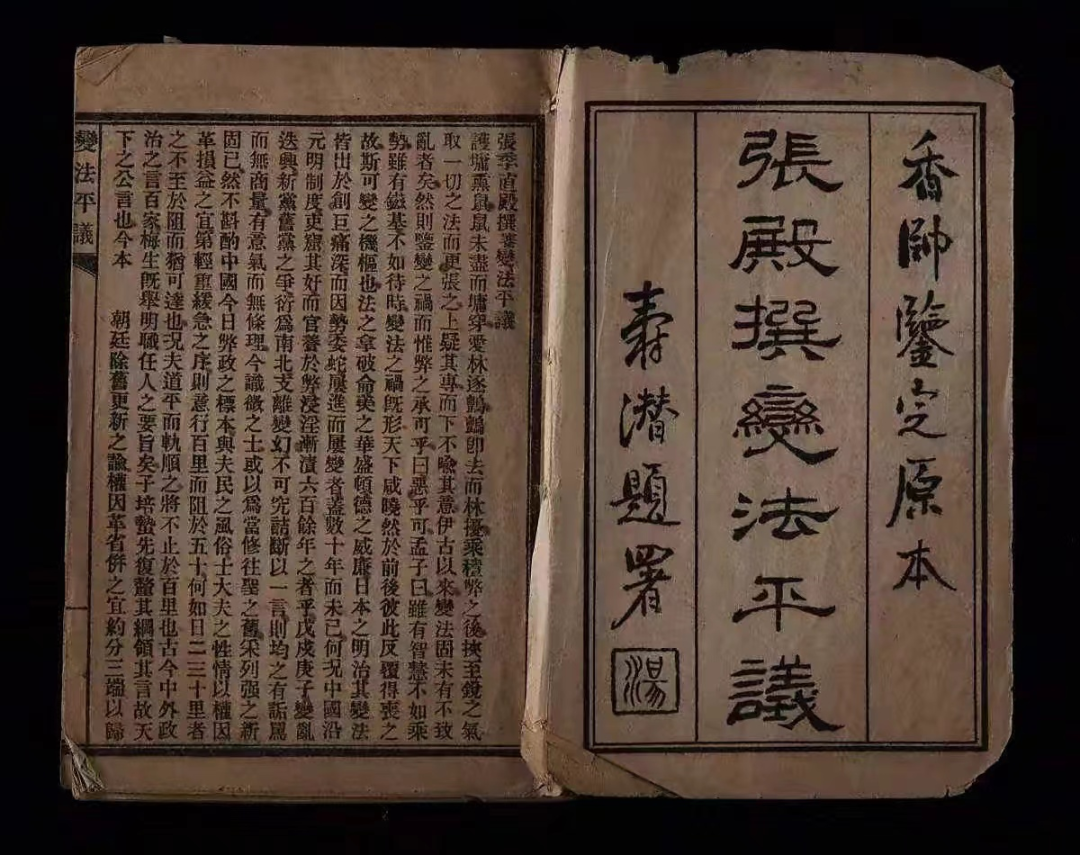 香帥鑒定原本
張殿撰變法平議
壽潛題署
湯
張季直殿撰謇變法平議
護墉熏鼠鼠未盡而墉穿愛林逐鸇鸇卽去而林擾乘積弊之後挾至銳之氣
取一切之法而更張之上疑其專而下不喩其意伊古以來變法固未有不致
亂者矣然則鑒變之禍而惟弊之承可乎曰惡乎可孟子曰雖有智慧不如乘
勢雖有鎡基不如待時變法之禍旣形天下咸曉然於前後彼此反覆得喪之
故斯可變之機樞也法之拿破侖美之華盛頓德之威廉日本之明治其變法
皆出於創巨痛深而因勢委蛇屢進而屢變者蓋數十年而未已何況中國沿
元明制度更竊其好而官耆於弊浸淫漸漬六百餘年之者乎戊戌庚子變亂
迭興新黨舊黨之爭衍爲南北支離變幻不可究詰斷以一言則均之有詬罵
而無商量有意氣而無條理今識微之士或以爲當修往聖之舊采列强之新
固已然不斟酌中國今日弊政之標本與夫民之風俗士大夫之性情以權因
革損益之宜第輕重緩急之序則意行百里而阻於五十何如日二三十里者
之不至於阻而猶可達也況夫道平而軌順之將不止於百里也古今中外政
治之言百家梅生旣舉明職任人之要旨矣子培蟄先復釐其綱領其言故天
下之公言也今本 朝廷除舊更新之諭權因革省併之宜約分三端以歸
變法平議
一